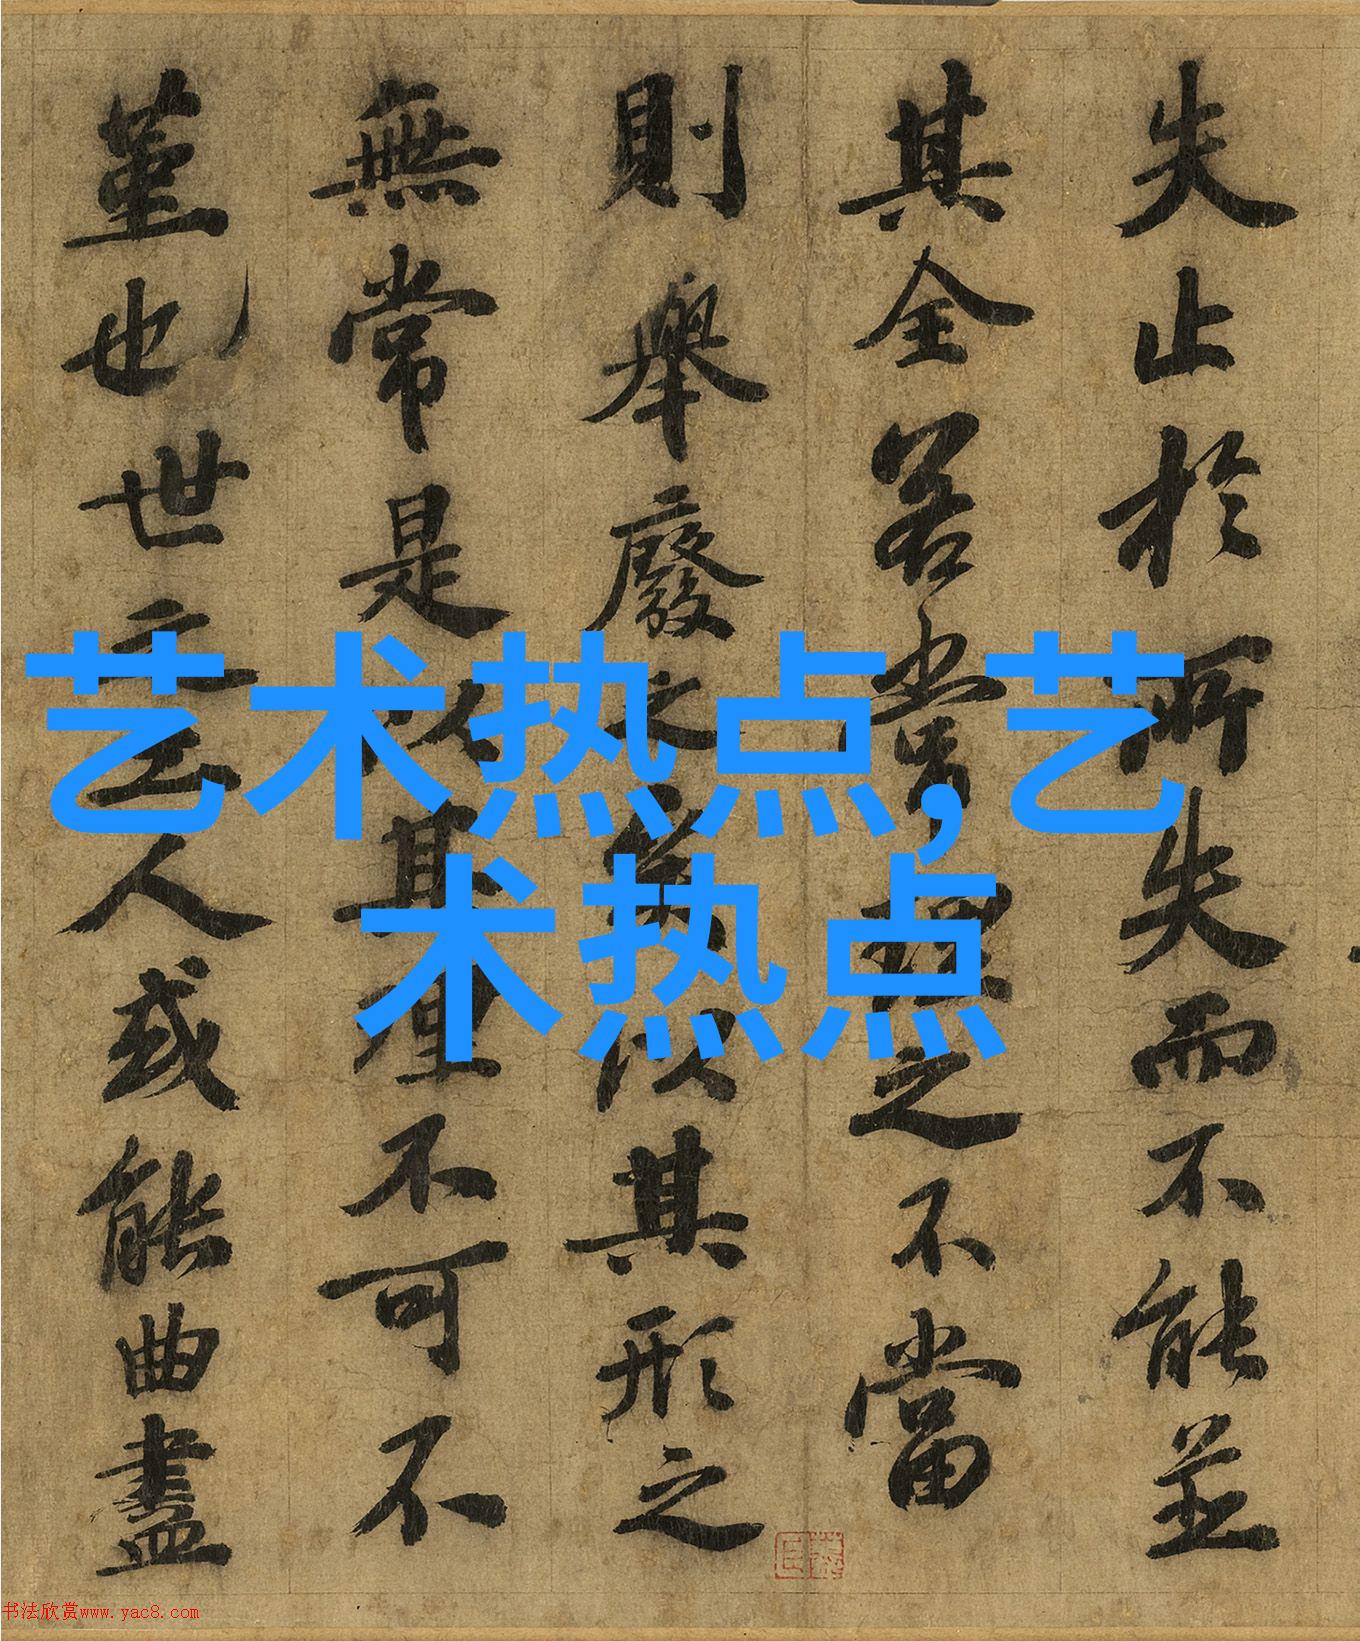 失止於所失而不能並
其全若常理之不當
則舉廢之矣以其形之
無常是以其理不可不
堇也世之工人或能曲盡
艺术热点,艺
术热点
书法欣赏www.yac8.com